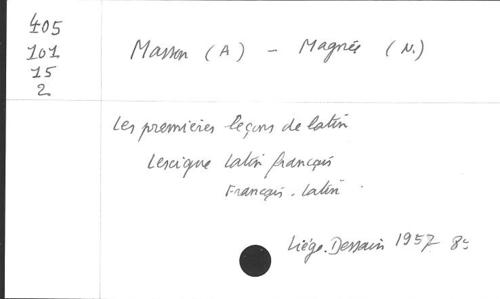 405
101
15
2
Masson (A) - Magnée (N.)
Les premières leçons de latin
Lescique latin français
Français - latin
Liége. Dessain 1957 8°